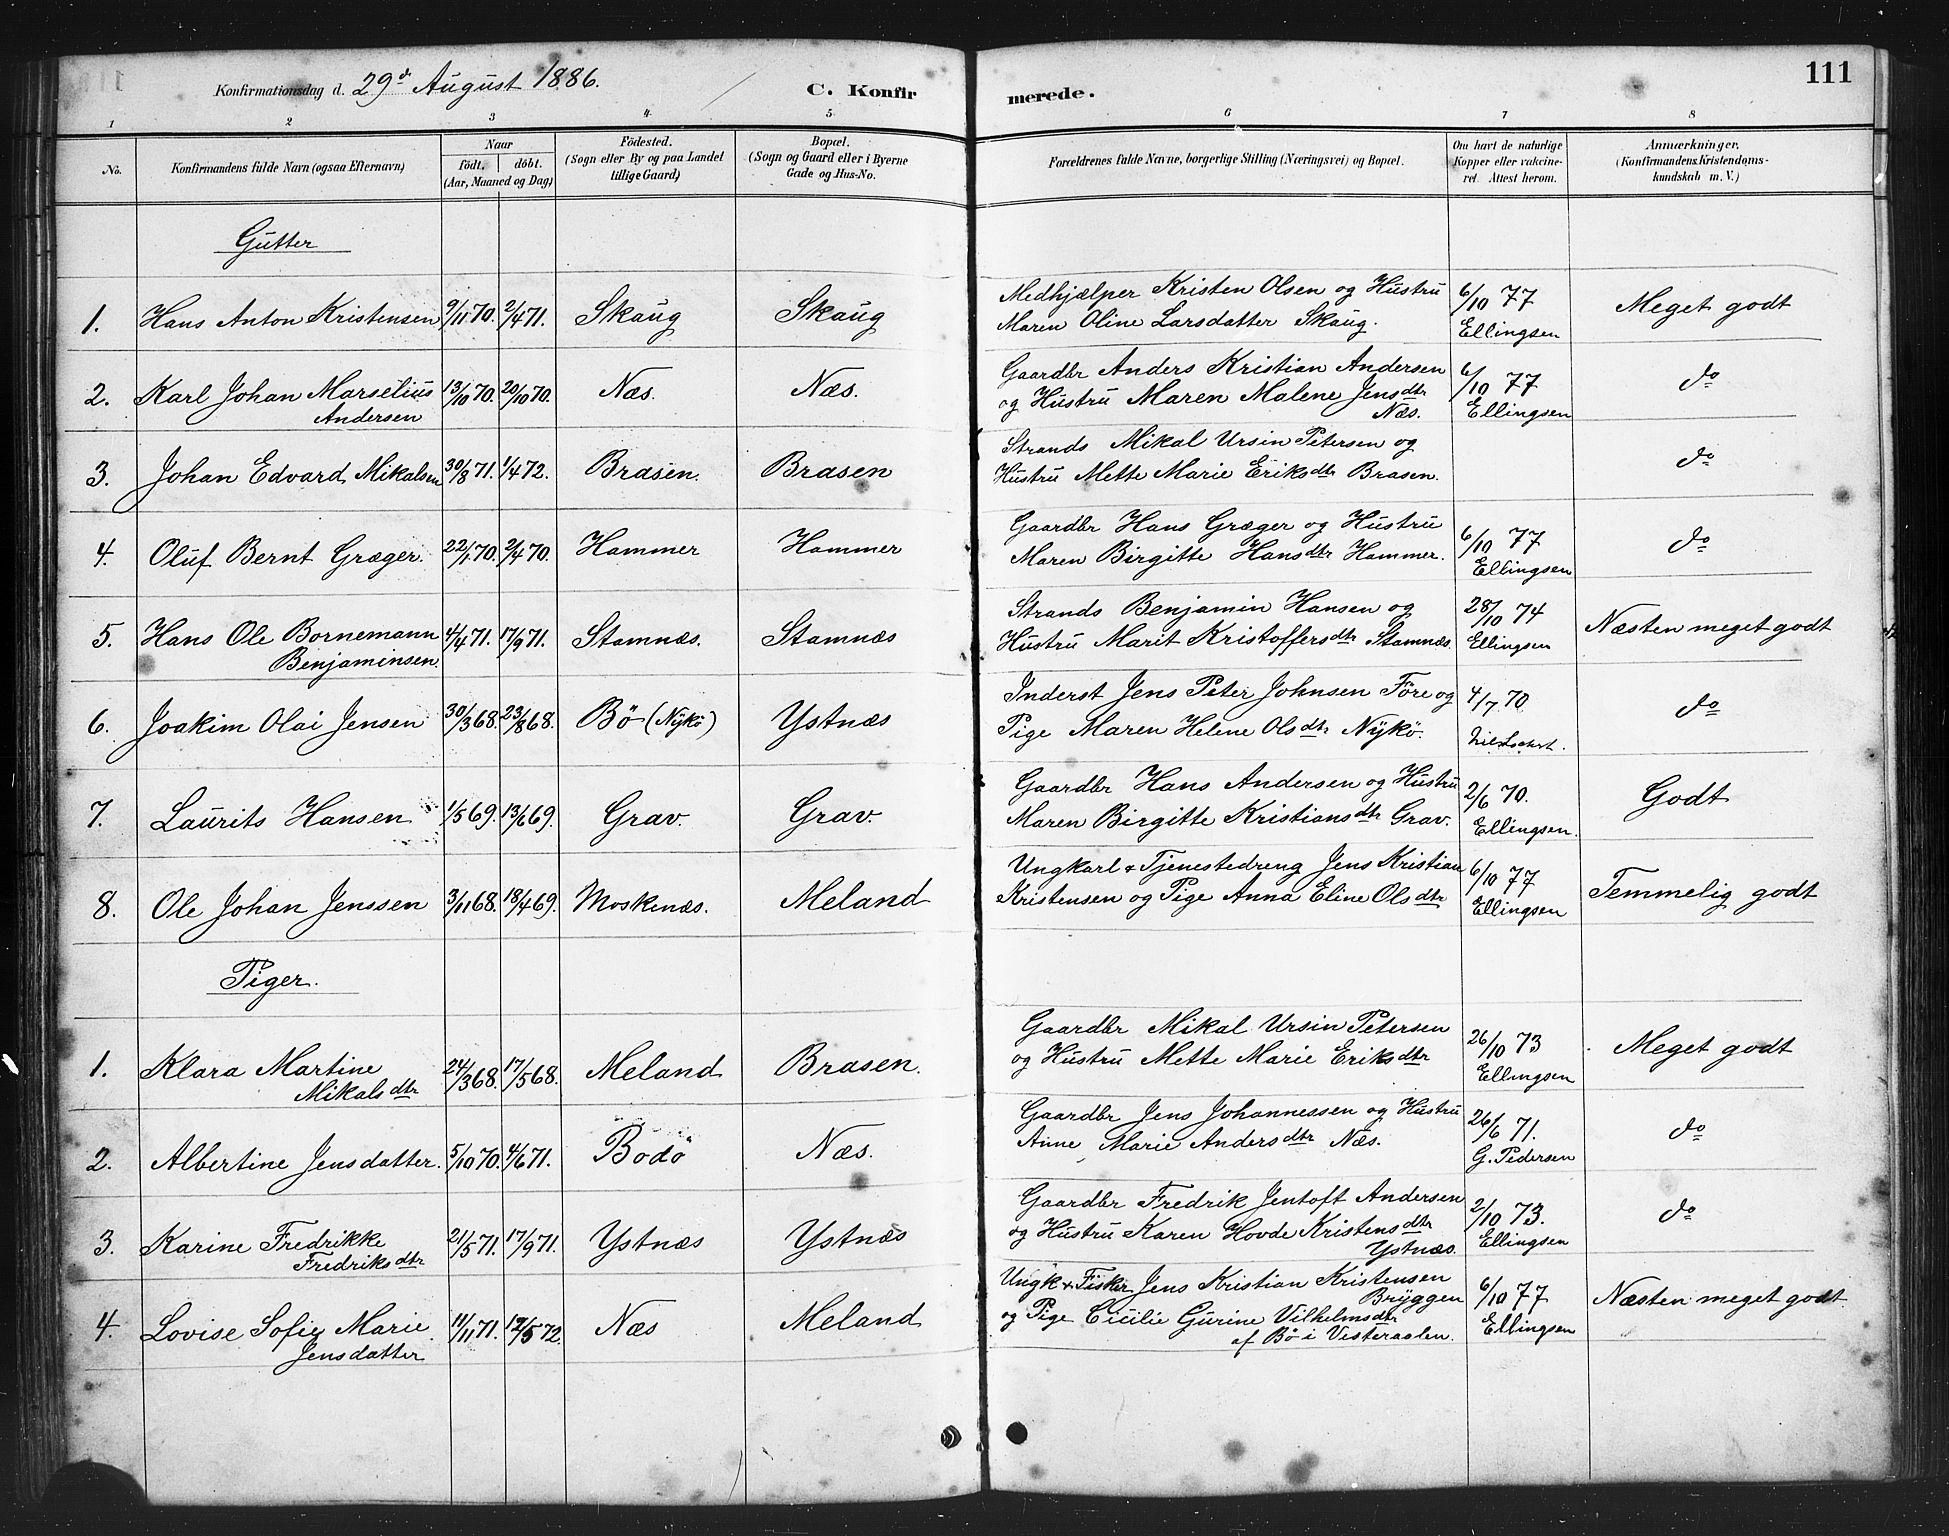 Konfirmationsdag d. 29d August 1886.
C. Konfirmerede.
111
1 2 3 4 5 6 7 8
No.
Konfirmandens fulde Navn (ogsaa Efternavn)
Naar
födt. döbt.
(Aar, Maaned og Dag)
Födested.
(Sogn eller By og paa Landet
tillige Gaard)
Bopæl.
(Sogn og Gaard eller i Byerne
Gade og Hus-No.
Forældrenes fulde Navne, borgerlige Stilling (Næringsvei) og Bopæl.
Om havt de naturlige
Kopper eller vakcine-
ret. Attest herom.
Anmærkninger.
(Konfirmandens Kristendoms-
kundskab m. V.)
Gutter
1. Hans Anton Kristensen 9/11 70. 2/4 71. Skaug Skaug
Medhjælper Kristen Olsen og Hustru
Maren Oline Larsdatter Skaug.
6/10 77
Ellingsen
Meget godt
2. Karl Johan Marselius
Andersen
13/10 70. 20/10 70. Næs. Næs.
Gaardbr Anders Kristian Andersen
og Hustru Maren Malene Jensdtr
Næs.
6/10 77
Ellingsen
do
3. Johan Edvard Mikalsen 30/8 71. 1/4 72. Brasen. Brasen
Strands Mikal Ursin Petersen og
Hustru Mette Marie Eriksdtr Brasen.
do
4. Oluf Bernt Græger. 22/1 70. 2/4 70. Hammer Hammer
Gaardbr Hans Græger og Hustru
Maren Birgitte Hansdtr Hammer.
6/10 77
Ellingsen
do
5. Hans Ole Bornemann
Benjaminsen.
4/4 71. 17/9 71. Stamnæs. Stamnæs
Strands Benjamin Hansen og
Hustru Marit Kristoffersdtr Stamnæs.
28/10 74
Ellingsen
Næsten meget godt
6. Joakim Olai Jensen 30/3 68. 23/8 68. Bö (Nykö) Ystnæs
Inderst Jens Peter Johnsen Före og
Pige Maren Helene Olsdtr Nykö.
4/7 70
do
7. Laurits Hansen 1/5 69. 13/6 69. Grav. Grav.
Gaardbr Hans Andersen og Hustru
Maren Birgitte Kristiansdtr Grav.
2/6 70.
Ellingsen.
Godt
8. Ole Johan Jenssen 3/11 68. 18/4 69. Moskenæs. Meland
Ungkarl & Tjenestedreng Jens Kristian
Kristensen og Pige Anna Eline Olsdtr
6/10 77
Ellingsen
Temmelig godt
Piger.
1. Klara Martine
Mikalsdtr
24/3 68. 17/5 68. Meland Brasen.
Gaardbr Mikal Ursin Petersen
og Hustru Mette Marie Eriksdtr
26/10 73
Ellingsen
Meget godt
2. Albertine Jensdatter. 5/10 70. 4/6 71. Bodö Næs.
Gaardbr Jens Johannessen og Hustru
Anne Marie Andersdtr Næs.
26/6 71.
G. Pedersen
do
3. Karine Fredrikke
Fredriksdtr
21/5 71. 17/9 71. Ystnæs Ystnæs
Gaardbr Fredrik Jentoft Andersen
og Hustru Karen Hovde Kristensdtr
Ystnæs.
2/10 73.
Ellingsen
do
4. Lovise Sofie Marie
Jensdatter
11/11 71. 12/5 72. Næs Meland
Ungk & Fisker Jens Kristian Kristensen
Bryggen
og Pige Cicilie Gurine Vilhelmsdtr
af Bö i Vesteraalen.
6/10 77
Ellingsen
Næsten meget godt